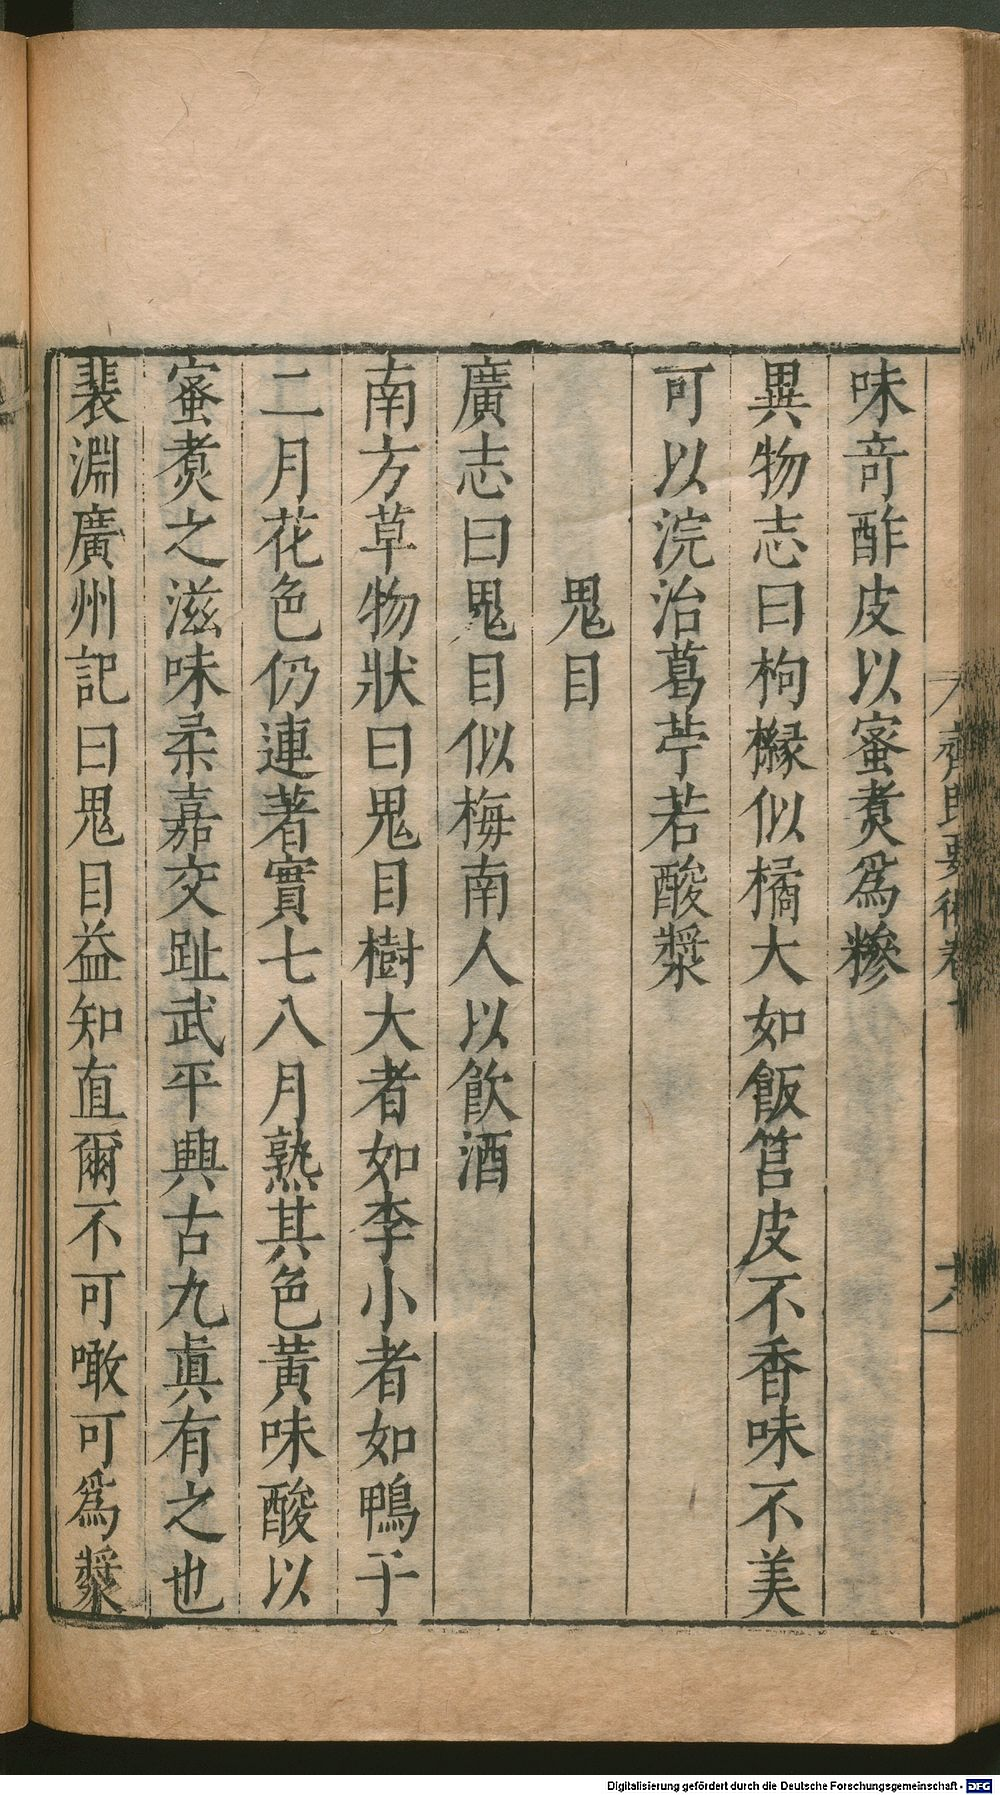 味奇酢皮以蜜煑爲糝
異物志曰枸櫞似橘大如飯筥皮不香味不美
可以浣治葛苧若酸漿
鬼目
廣志曰鬼目似梅南人以飮酒
南方草物狀曰鬼目樹大者如李小者如鴨子
二月花色仍連著實七八月熟其色黃味酸以
蜜煑之滋味柔嘉交趾武平興古九眞有之也
裴淵廣州記曰鬼目益知直爾不可噉可爲漿
齊民要術卷十
十八
Digitalisierung gefördert durch die Deutsche Forschungsgemeinschaft - DFG